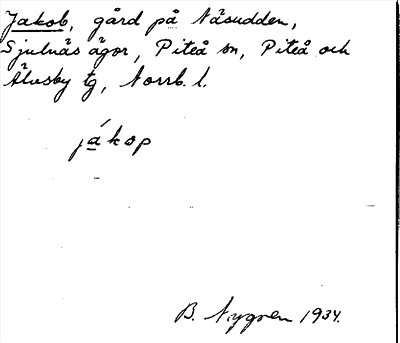 Jakob, gård på Näsudden,
Sjulnäs ägor, Piteå sn, Piteå och
Älvsby tg, Norrb. l.
já̱kop
B. Nygren 1934.